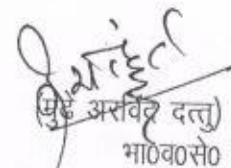 (मुंढे अरविंद दत्तु)
भा०व०से०